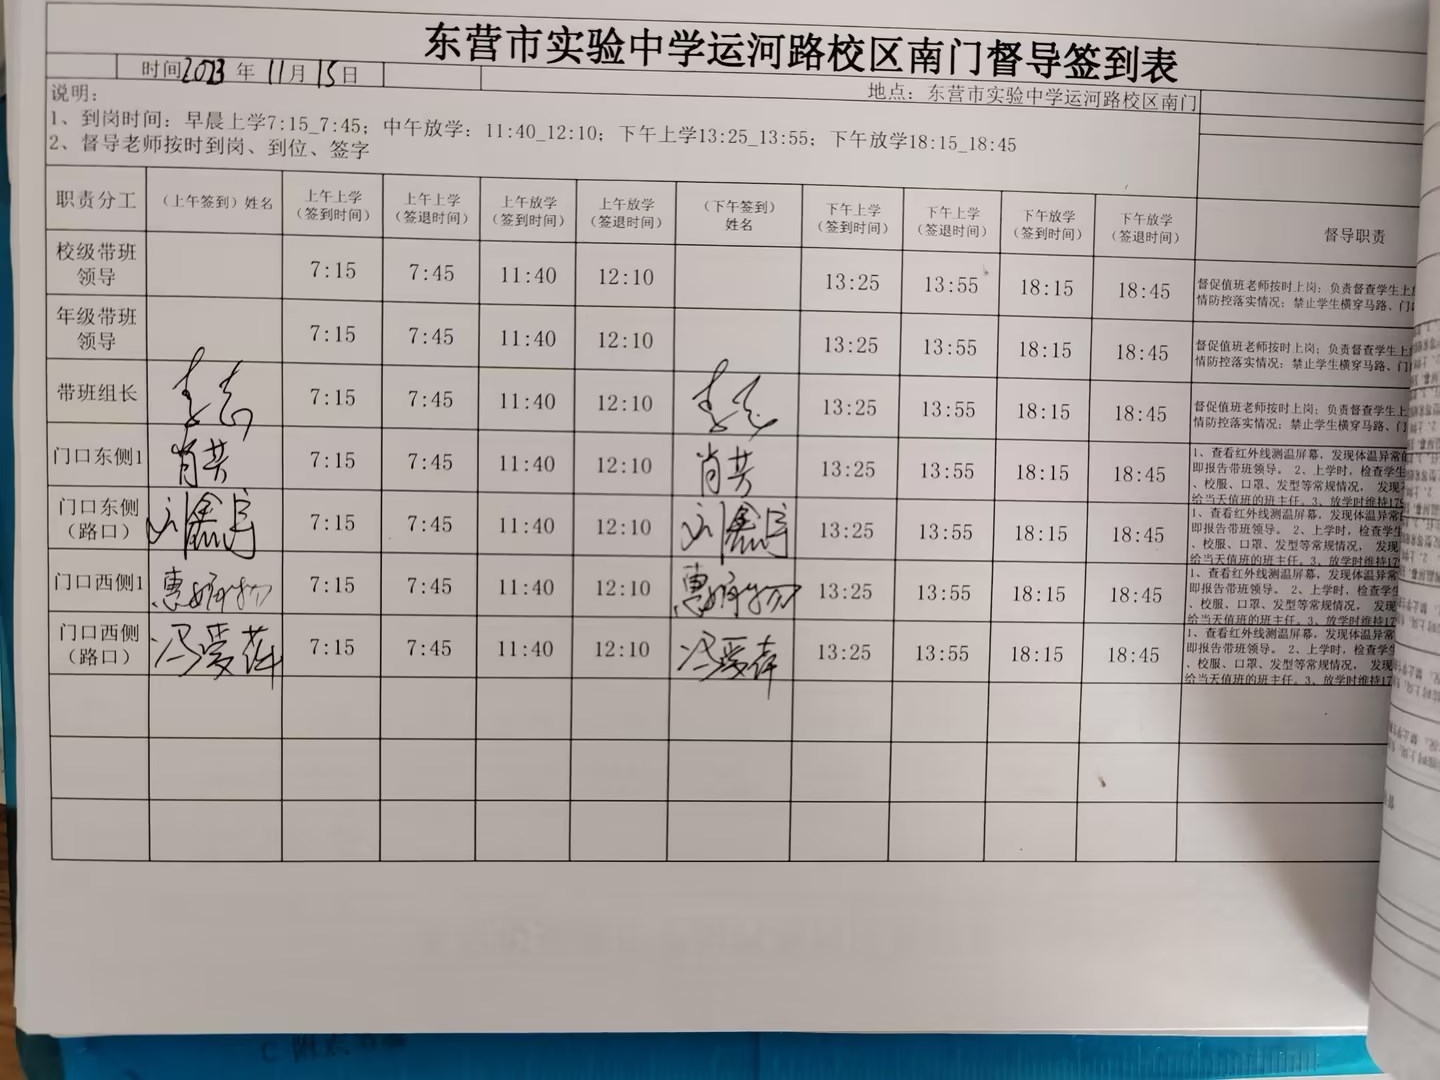 东营市实验中学运河路校区南门督导签到表
时间2023年11月15日
地点：东营市实验中学运河路校区南门
说明：
1、到岗时间：早晨上学7:15_7:45；中午放学：11:40_12:10；下午上学13:25_13:55；下午放学18:15_18:45
2、督导老师按时到岗、到位、签字
职责分工 （上午签到）姓名 上午上学（签到时间） 上午上学（签退时间） 上午放学（签到时间） 上午放学（签退时间） （下午签到）姓名 下午上学（签到时间） 下午上学（签退时间） 下午放学（签到时间） 下午放学（签退时间） 督导职责
校级带班领导 7:15 7:45 11:40 12:10 13:25 13:55 18:15 18:45 督促值班老师按时上岗；负责督查学生上
情防控落实情况；禁止学生横穿马路、门
年级带班领导 7:15 7:45 11:40 12:10 13:25 13:55 18:15 18:45 督促值班老师按时上岗；负责督查学生上
情防控落实情况；禁止学生横穿马路、门
带班组长 7:15 7:45 11:40 12:10 13:25 13:55 18:15 18:45 督促值班老师按时上岗；负责督查学生上
情防控落实情况；禁止学生横穿马路、门
门口东侧1 7:15 7:45 11:40 12:10 13:25 13:55 18:15 18:45 1、查看红外线测温屏幕，发现体温异常
即报告带班领导。 2、上学时，检查学生
、校服、口罩、发型等常规情况， 发现
给当天值班的班主任。3、放学时维持
门口东侧（路口） 7:15 7:45 11:40 12:10 13:25 13:55 18:15 18:45 1、查看红外线测温屏幕，发现体温异常
即报告带班领导。 2、上学时，检查学生
、校服、口罩、发型等常规情况， 发现
给当天值班的班主任。3、放学时维持
门口西侧1 7:15 7:45 11:40 12:10 13:25 13:55 18:15 18:45 1、查看红外线测温屏幕，发现体温异常
即报告带班领导。 2、上学时，检查学生
、校服、口罩、发型等常规情况， 发现
给当天值班的班主任。3、放学时维持
门口西侧（路口） 冯爱萍 7:15 7:45 11:40 12:10 冯爱萍 13:25 13:55 18:15 18:45 1、查看红外线测温屏幕，发现体温异常
即报告带班领导。 2、上学时，检查学生
、校服、口罩、发型等常规情况， 发现
给当天值班的班主任。3、放学时维持